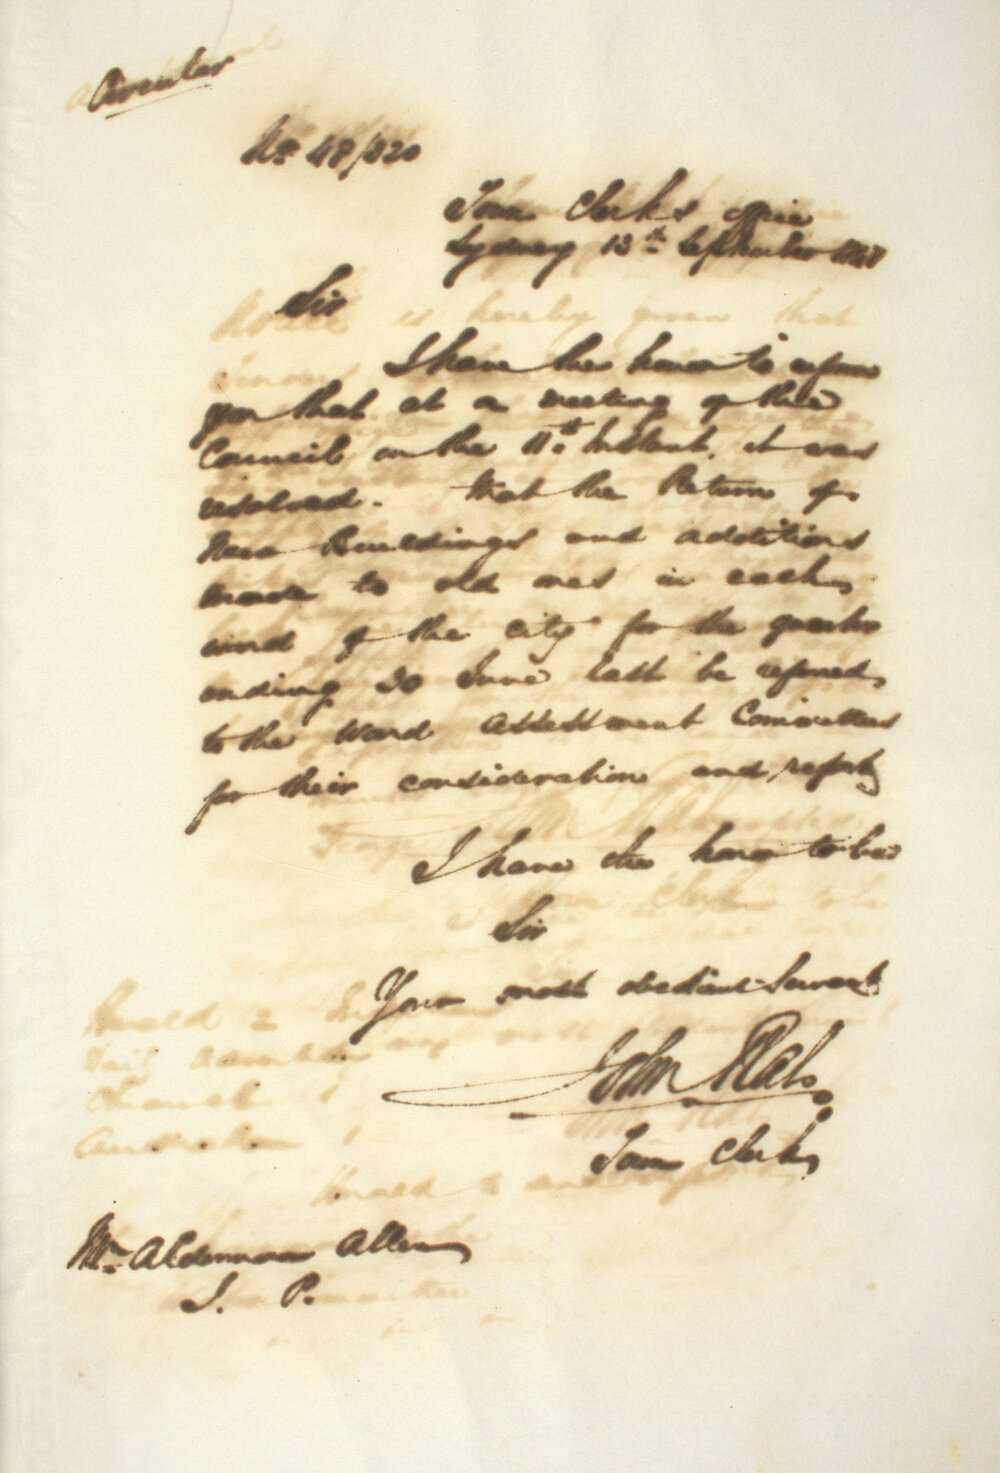 Circular
No. 48/320
Town Clerk's office
Sydney 13th September 1848
Sir
I have the honor to inform
you that at a meeting of the
Council on the 11th Instant, it was
resolved. That the Return of
New Buildings and additions
made to old ones in each
ward of the city for the quarter
ending 30 June last be referred
to the Ward Assessment Committees
for their consideration and report
I have the honor to be
Sir
Your most obedient Servant
John Rae
Town Clerk
Mr. Alderman Allen
J. P.